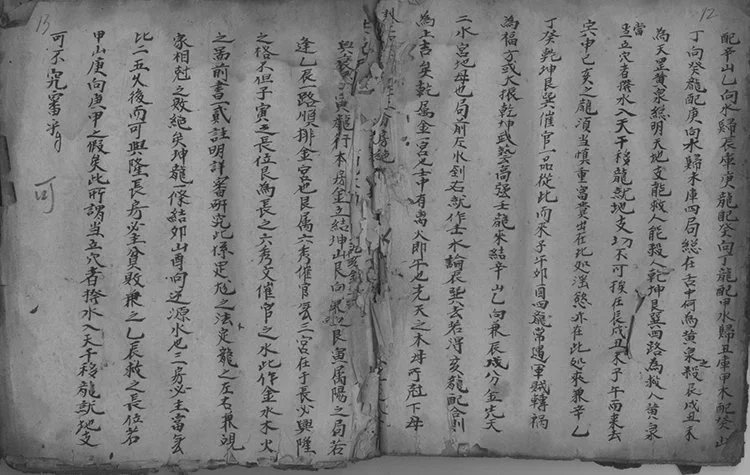 12
配辛山乙向水歸辰庫庚龍配癸向丁龍配甲水歸丑庫甲木配癸山
丁向癸龍配庚向水歸未庫四局総在吉中何為黃泉殺辰戌丑未
為天罡黃泉総明天地支龍救人能殺人乾坤艮巽四路為救人黃泉
當立穴者撥水入天干移龍就地支切不可挨在辰戌丑未子午而來去
寅申巳亥之龍須当慎重富貴出在此処淫慾亦在此処來兼辛乙
丁癸乾坤艮巽催官一品從此而來子午卯酉四龍常遇軍賊轉禍
為福方或大振乾坤武藝高強壬龍來結辛山乙向兼辰戌分金先天
二水宮地母也局前左水到右就作壬水論辰巽去若得亥龍配合則
為上吉矣乾属金宮之中有离火即午也先天之木母所尅下母
龍行本房金立結坤山艮向艮寅属陽之局若
逢乙辰一路順排金宮也艮属六秀催官云三宮在于長必興隆
之格但子寅之長位艮為長之六秀文催官之水此作金水木火
之局前書貳註明詳審研究此係定尅之法定龍之左右兼覌
家相尅之敗絕矣坤龍一條結卯山酉向逆源水也三房必主當無
比二五久後而可興隆長房必主貧敗兼之乙辰救之長位若
甲山庚向庚甲之假矣此所謂当立穴者撥水入天干移龍就地支
可不究審膋
可
13